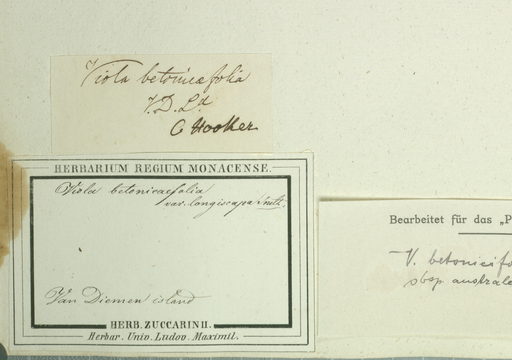 Viola betonicæfolia
V.D.Ld
C Hooker
HERBARIUM REGIUM MONACENSE.
Viola betonicaefolia
var. longiscapa
Van Diemen island
HERB. ZUCCARINII.
Herbar. Univ. Ludov. Maximil.
Bearbeitet für das „P
V. betonicifo
sbsp australe